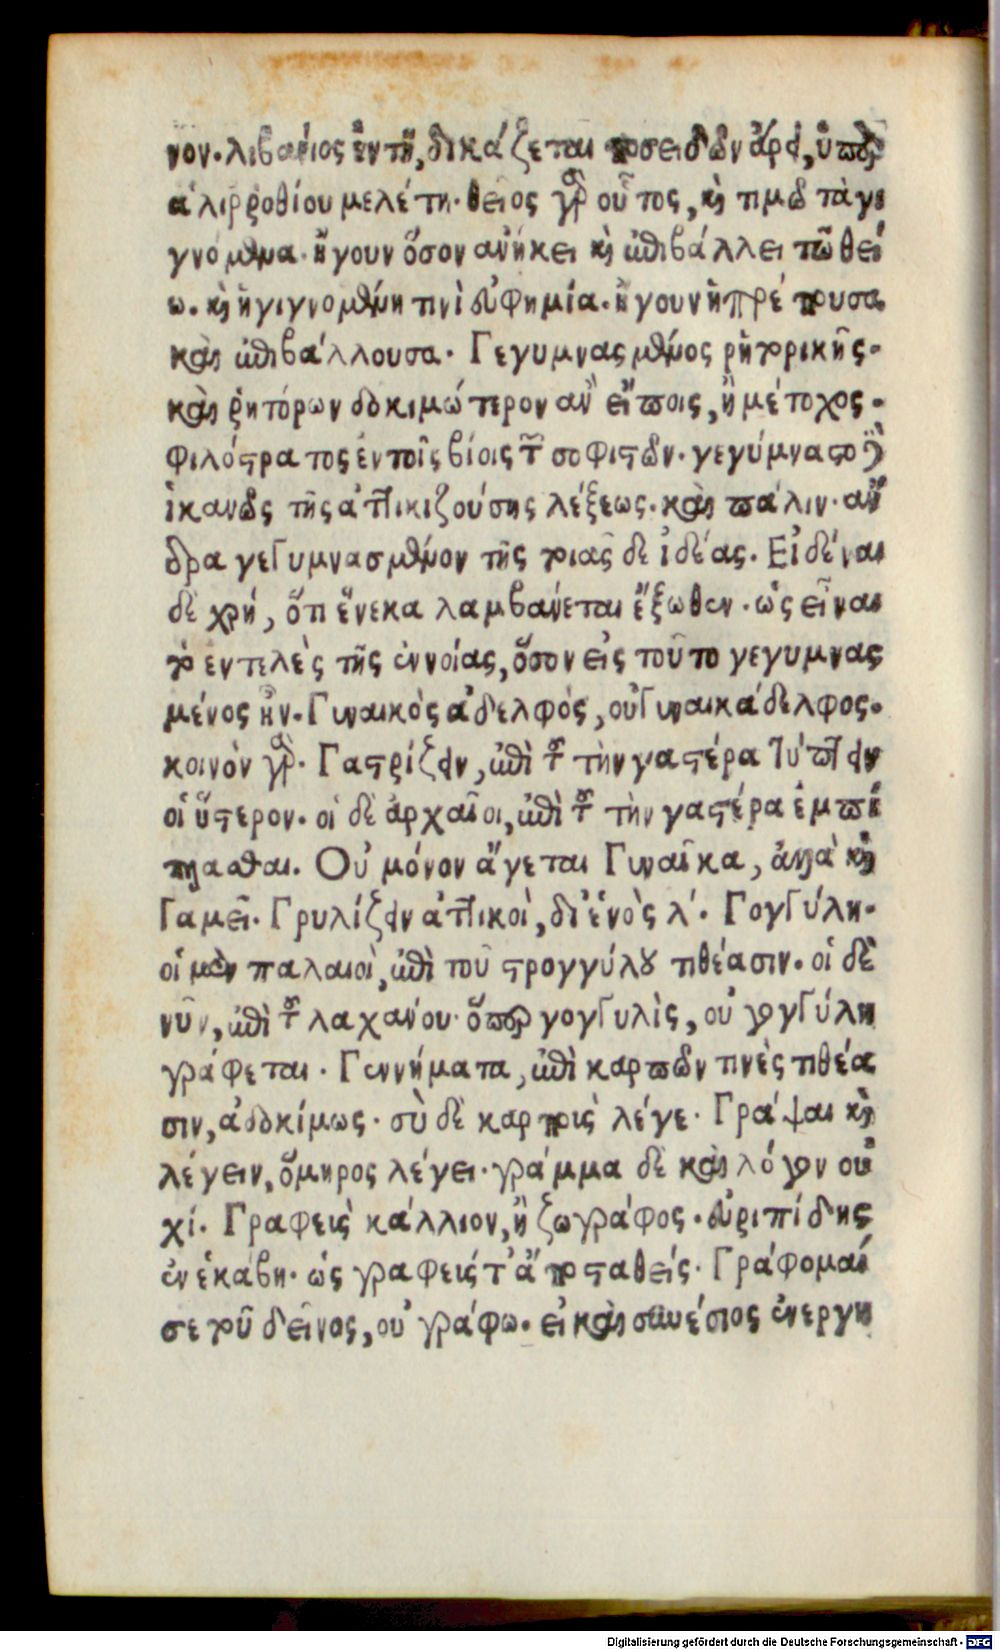 νον. λιβάνιος ἐν τῆ, δικάζεται ποσειδῶν ἄρει, ὑπὲρ
ἁλιρροθίου μελέτη. θεῖος γὰρ οὗτος, καὶ τιμᾷ τὰ γι
γνόμενα. ἤγουν ὅσον ἀνήκει καὶ ἐπιβάλλει τῶ θεί
ω. καὶ ἡ γιγνομένη τινὶ εὐφημία. ἤγουν ἡ πρέπουσα
καὶ ἐπιβάλλουσα. Γεγυμνασμένος ῥητορικῆς.
καὶ ῥητόρων δοκιμώτερον ἂν εἴποις, ἢ μέτοχος.
Φιλόστρατος ἐν τοῖς βίοις τῶν σοφιστῶν. γεγύμναστο δὲ
ἱκανῶς τῆς ἀττικιζούσης λέξεως. καὶ πάλιν. ἄν
δρα γεγυμνασμένον τῆς τοιᾶς δε ἰδέας. Εἰδέναι
δὲ χρή, ὅτι ἕνεκα λαμβάνεται ἔξωθεν. ὡς εἶναι
τὸ ἐντελὲς τῆς ἐννοίας, ὅσον εἰς τοῦτο γεγυμνασ
μένος ἦν. Γυναικὸς ἀδελφός, οὐ γυναικάδελφος.
κοινὸν γάρ. Γαστρίζειν, ἐπὶ τοῦ τὴν γαστέρα τύπτειν
οἱ ὕστερον. οἱ δὲ ἀρχαῖοι, ἐπὶ τοῦ τὴν γαστέρα ἐμπί
πλασθαι. Οὐ μόνον ἄγεται Γυναῖκα, ἀλλὰ καὶ
Γαμεῖ. Γρυλίζειν ἀττικοὶ, δι' ἑνὸς λ'. Γογγύλη.
οἱ μὲν παλαιοὶ, ἐπὶ τοῦ στρογγύλου τιθέασιν. οἱ δὲ
νῦν, ἐπὶ τοῦ λαχάνου. ὅπερ γογγυλὶς, οὐ γογγύλη
γράφεται. Γεννήματα, ἐπὶ καρπῶν τινὲς τιθέα
σιν, ἀδοκίμως. σὺ δὲ καρποὺς λέγε. Γράψαι καὶ
λέγειν, ὅμηρος λέγει. γράμμα δὲ καὶ λόγον οὐ
χί. Γραφεὺς κάλλιον, ἢ ζωγράφος. εὐριπίδης
ἐν ἑκάβη. ὡς γραφεύς τ' ἀποσταθείς. Γράφομαί
σε τοῦ δεῖνος, οὐ γράφω. εἰ καὶ συνέσιος ἐνεργη
Digitalisierung gefördert durch die Deutsche Forschungsgemeinschaft - DFG